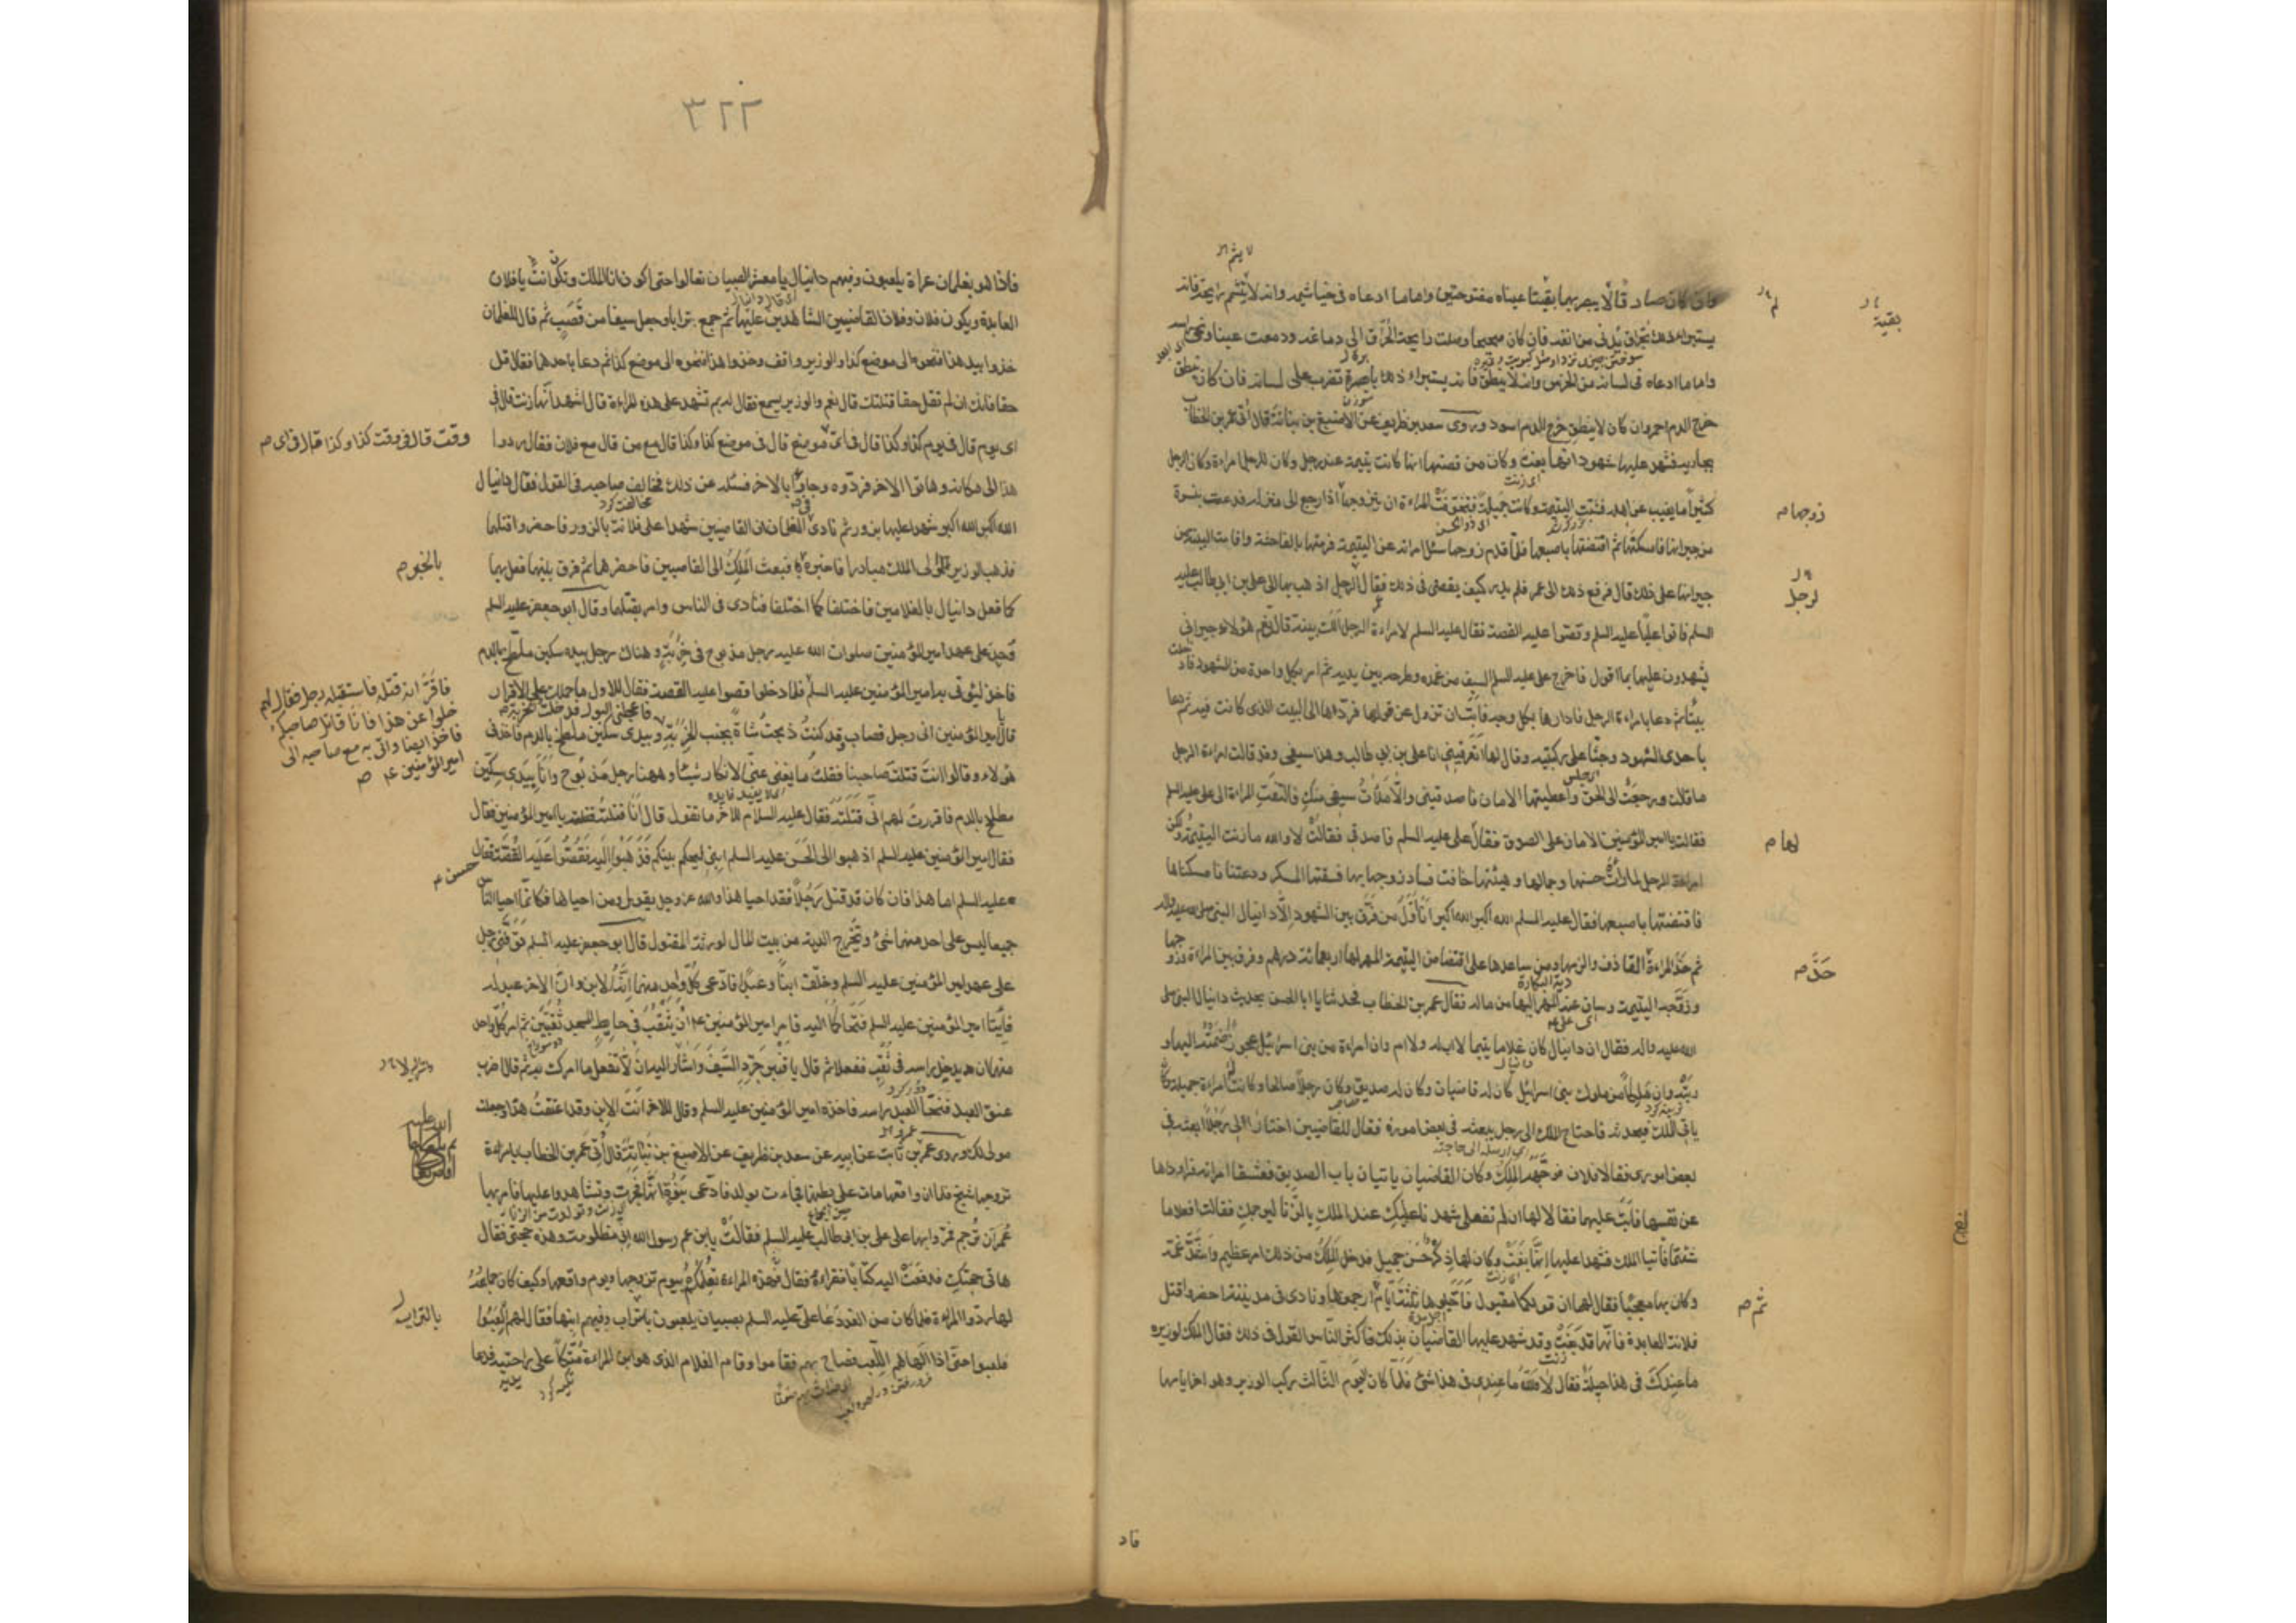 وان كان صادقا لا يجربهما بقيتا عيناه مفتوحتين واما ما ادعاه فى خياشيمه وانه لا يشم رايحة فانه
يستبرا ذلك بحراق يدنى من انفه فان كان صحيحا وصلت رايحة الحراق الى دماغه ودمعت عيناه ونحى راسه
واما ما ادعاه فى لسانه من الخرس وانه لا ينطق فانه يستبراء ذلك بابرة تضرب على لسانه فان كان ينطق
خرج الدم احمر وان كان لا ينطق خرج الدم اسود وروى سعد بن طريف عن الاصبغ بن نباتة قال اتى عمر بن الخطاب
بجارية فشهد عليها شهود انها بغت وكان من قصتها انها كانت يتيمة عند رجل وكان للرجل امراة وكان الرجل
كثيرا ما يغيب عن اهله فشبت اليتيمة وكانت جميلة فتخوفت المراءة ان يتزوجها اذا رجع الى منزله فدعت بنسوة
من جيرانها فامسكنها ثم افتضتها باصبعها فلما قدم زوجها سئل امراته عن اليتيمة فرمتها بالفاحشة واقامت البينة من
جيرانها على ذلك قال فرفع ذلك الى عمر فلم يدر كيف يقضى فى ذلك فقال للرجل اذهب بها الى على بن ابى طالب عليه
السلم فاتوا عليا عليه السلم وقصوا عليه القصة فقال عليه السلم لامراءة الرجل الك بينة قالت نعم هؤلاء جيرانى
يشهدون عليها بما اقول فاخرج على عليه السلم السيف من غمده وطرحه بين يديه ثم امر بكل واحدة من الشهود فادخلت
بيتا ثم دعا بامراءة الرجل فادارها بكل وجه فابت ان تزول عن قولها فردها الى البيت الذى كانت فيه ثم دعا
باحدى الشهود وجثا على ركبتيه وقال لها اتعرفينى انا على بن ابى طالب وهذا سيفى وقد قالت امراءة الرجل
ما قالت ورجعت الى الحق واعطيتها الامان فاصدقينى والا ملأت سيفى منك فالتفت المراءة الى على عليه السلم
فقالت يا امير المؤمنين الامان على الصدق فقال على عليه السلم فاصدقى فقالت لا والله ما زنت اليتيمة ولكن
امراءة الرجل لما رات حسنها وجمالها وهيئتها خافت فساد زوجها بها فسقتها المسكر ودعتنا فامسكناها
فافتضتها باصبعها فقال عليه السلم الله اكبر الله اكبر انا اول من فرق بين الشهود الا دانيال النبى صلى الله عليه واله
ثم حد المراءة القاذف والزمها ومن ساعدها على افتضاض اليتيمة المهر لها اربعمائة درهم وفرق بين المراءة وزوجها
وزوجه اليتيمة وساق عنه المهر اليها من ماله فقال عمر بن الخطاب فحدثنا يا ابا الحسن بحديث دانيال النبى صلى
الله عليه واله فقال ان دانيال كان غلاما يتيما لا اب له ولا ام وان امراءة من بنى اسرائيل عجوزا ضمته اليها و
ربته وان ملكا من ملوك بنى اسرائيل كان له قاضيان وكان له صديق وكان رجلا صالحا وكانت له امراءة جميلة وكان
ياتى الملك فيحدثه فاحتاج الملك الى رجل يبعثه فى بعض اموره فقال للقاضيين اختارا لى رجلا ابعثه فى
بعض امورى فقالا فلان فوجهه الملك وكان القاضيان ياتيان باب الصديق فعشقا امراته فراوداها
عن نفسها فابت عليهما فقالا لها ان لم تفعلى شهدنا عليك عند الملك بالزنا ليرجمك فقالت افعلا ما
شئتما فاتيا الملك فشهدا عليها انها بغت وكان لها ذكر حسن جميل فدخل الملك من ذلك امر عظيم واشتد غمه
وكان بها معجبا فقال لهما ان قولكما مقبول فاجلوها ثلثة ايام ثم ارجموها ونادى فى مدينته احضروا قتل
فلانة العابدة فانها قد بغت وقد شهد عليها القاضيان بذلك فاكثر الناس القول فى ذلك فقال الملك لوزيره
ما عندك فى هذا حيلة فقال لا والله ما عندى فى هذا شئ فلما كان اليوم الثالث ركب الوزير وهو اخر ايامها
لا يشم
بقية
زوجها م
لرجل
لها م
حد م
ثم م
فاذ
٣٢٢
فاذا هو بغلمان عراة يلعبون وفيهم دانيال يا معشر الصبيان تعالوا حتى اكون انا الملك وتكون انت يا فلان
العابدة ويكون فلان وفلان القاضيين الشاهدين عليها ثم جمع ترابا وجعل سيفا من قصب ثم قال للغلمان
خذوا بيد هذا فنحوه الى موضع كذا والوزير واقف وخذوا هذا فنحوه الى موضع كذا ثم دعا باحدهما فقال قل
حقا فانك ان لم تقل حقا قتلتك قال نعم والوزير يسمع فقال له بم تشهد على هذه المراءة قال اشهد انها زنت قال فى
اى يوم قال فى يوم كذا وكذا قال فى اى موضع قال فى موضع كذا وكذا قال مع من قال مع فلان فقال ردوا
هذا الى مكانه وهاتوا الاخر فردوه وجاؤا بالاخر فسئله عن ذلك فخالف صاحبه فى القول فقال دانيال
الله اكبر الله اكبر شهدا عليها بزور ثم نادى فى الغلمان ان القاضيين شهدا على فلانة بالزور فاحضروا قتلهما
فذهب الوزير الى الملك مبادرا فاخبره فبعث الملك الى القاضيين فاحضرهما ثم فرق بينهما ففعل بهما
كما فعل دانيال بالغلامين فاختلفا كما اختلفا فنادى فى الناس وامر بقتلهما وقال ابو جعفر عليه السلم
وجد على عهد امير المؤمنين صلوات الله عليه رجل مذبوح فى خربة وهناك رجل بيده سكين ملطخ بالدم
فاخذ ليؤتى به امير المؤمنين عليه السلم فلما دخلوا قصوا عليه القصة فقال للاول ما حملك على الاقرار
قال يا امير المؤمنين انى رجل قصاب وقد كنت ذبحت شاة بجنب الخربة وبيدى سكين ملطخ بالدم فاخذنى
هؤلاء وقالوا انت قتلت صاحبنا فقلت ما يغنى عنى الانكار شيئا وههنا رجل مذبوح وانا بيدى سكين
ملطخ بالدم فاقررت لهم انى قتلته فقال عليه السلام للاخر ما تقول قال انا قتلته يا امير المؤمنين فقال
فقال امير المؤمنين عليه السلم اذهبوا الى الحسن عليه السلم ابنى ليحكم بينكم فذهبوا اليه فقصوا عليه القصة فقال
عليه السلم اما هذا فان كان قد قتل رجلا فقد احيا هذا والله عز وجل يقول ومن احياها فكانما احيا الناس
جميعا ليس على احد منهما شئ وتخرج الدية من بيت المال لورثة المقتول قال ابو جعفر عليه السلم توفى رجل
على عهد امير المؤمنين عليه السلم وخلف ابنا وعبدا فادعى كل واحد منهما انه الابن وان الاخر عبد له
فاتيا امير المؤمنين عليه السلم فتحاكما اليه فامر امير المؤمنين ع ان يثقب فى حايط المسجد ثقبين ثم امر كل واحد
منهما ان يدخل راسه فى ثقب ففعلا ثم قال يا قنبر جرد السيف واشار اليه ان لا تفعل ما امرك به ثم قال اضرب
عنق العبد فنحا العبد راسه فاخذه امير المؤمنين عليه السلم وقال للاخر انت الابن وقد اعتقت هذا وجعلته
مولى لك وروى عمرو بن ثابت عن ابيه عن سعد بن طريف عن الاصبغ بن نباتة قال اتى عمر بن الخطاب بامراءة
تزوجها شيخ فلما ان واقعها مات على بطنها فجاءت بولد فادعى بنوه انها فجرت وتشاهدوا عليها فامر بها
عمر ان ترجم فمروا بها على على بن ابى طالب عليه السلم فقالت يا بن عم رسول الله انى مظلومة وهذه حجتى فقال
هاتى حجتك فدفعت اليه كتابا فقراءه فقال هذه المراءة تعلمكم بيوم تزوجها ويوم واقعها وكيف كان جماعه
لها ردوا المراءة فلما كان من الغد دعا على عليه السلم بصبيان يلعبون باتراب وفيهم ابنها فقال لهم العبوا
فلعبوا حتى اذا الهاهم اللعب فصاح بهم فقاموا وقام الغلام الذى هو ابن المراءة متكئا على راحتيه فدعا
وقت قال فى وقت كذا وكذا قال فى اى م
بالخبر م
فاقر انه قتله فاستقبله رجل فقال لهم
خلوا عن هذا فانا قاتل صاحبكم
فاخذ ايضا واتى به مع صاحبه الى
امير المؤمنين ع ص
حسن ع